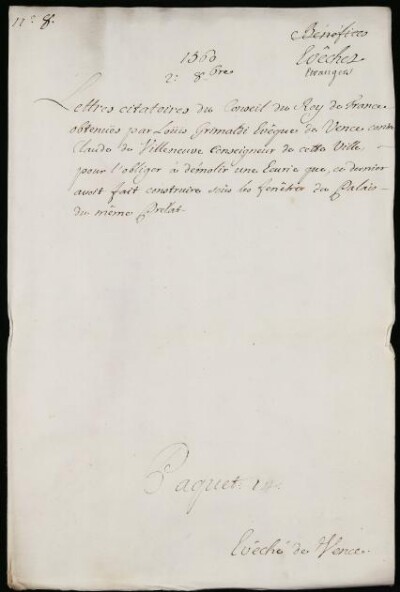 n.º 8.
Bénéfices
Evêchez
Etrangers
1560
2.e 8.bre
Lettres citatoires du Conseil du Roy de France
obtenües par Louis Grimaldi Evêque de Vence contre
Claude de Villeneuve Conseigneur de cette Ville
pour l'obliger à démolir une Ecurie que ce dernier
avoit fait construire sous les fenêtres du Palais
du même Prélat.
Paquet
Evêché de Vence.